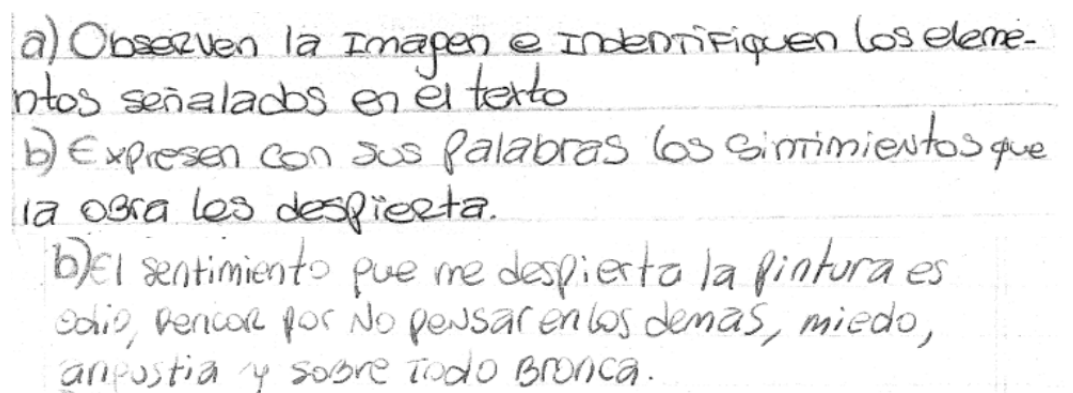 a) Observen la Imagen e Indentifiquen los eleme-
ntos señalados en el texto
b) Expresen con sus Palabras los Sintimientos que
la obra les despierta.
b) El sentimiento que me despierta la pintura es
odio, rencor por No pensar en los demas, miedo,
angustia y sobre Todo Bronca.